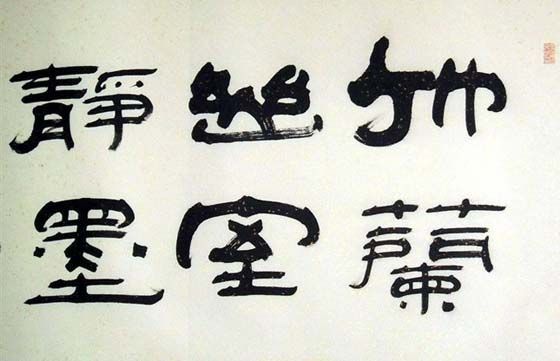 竹蘭
幽室
靜墨